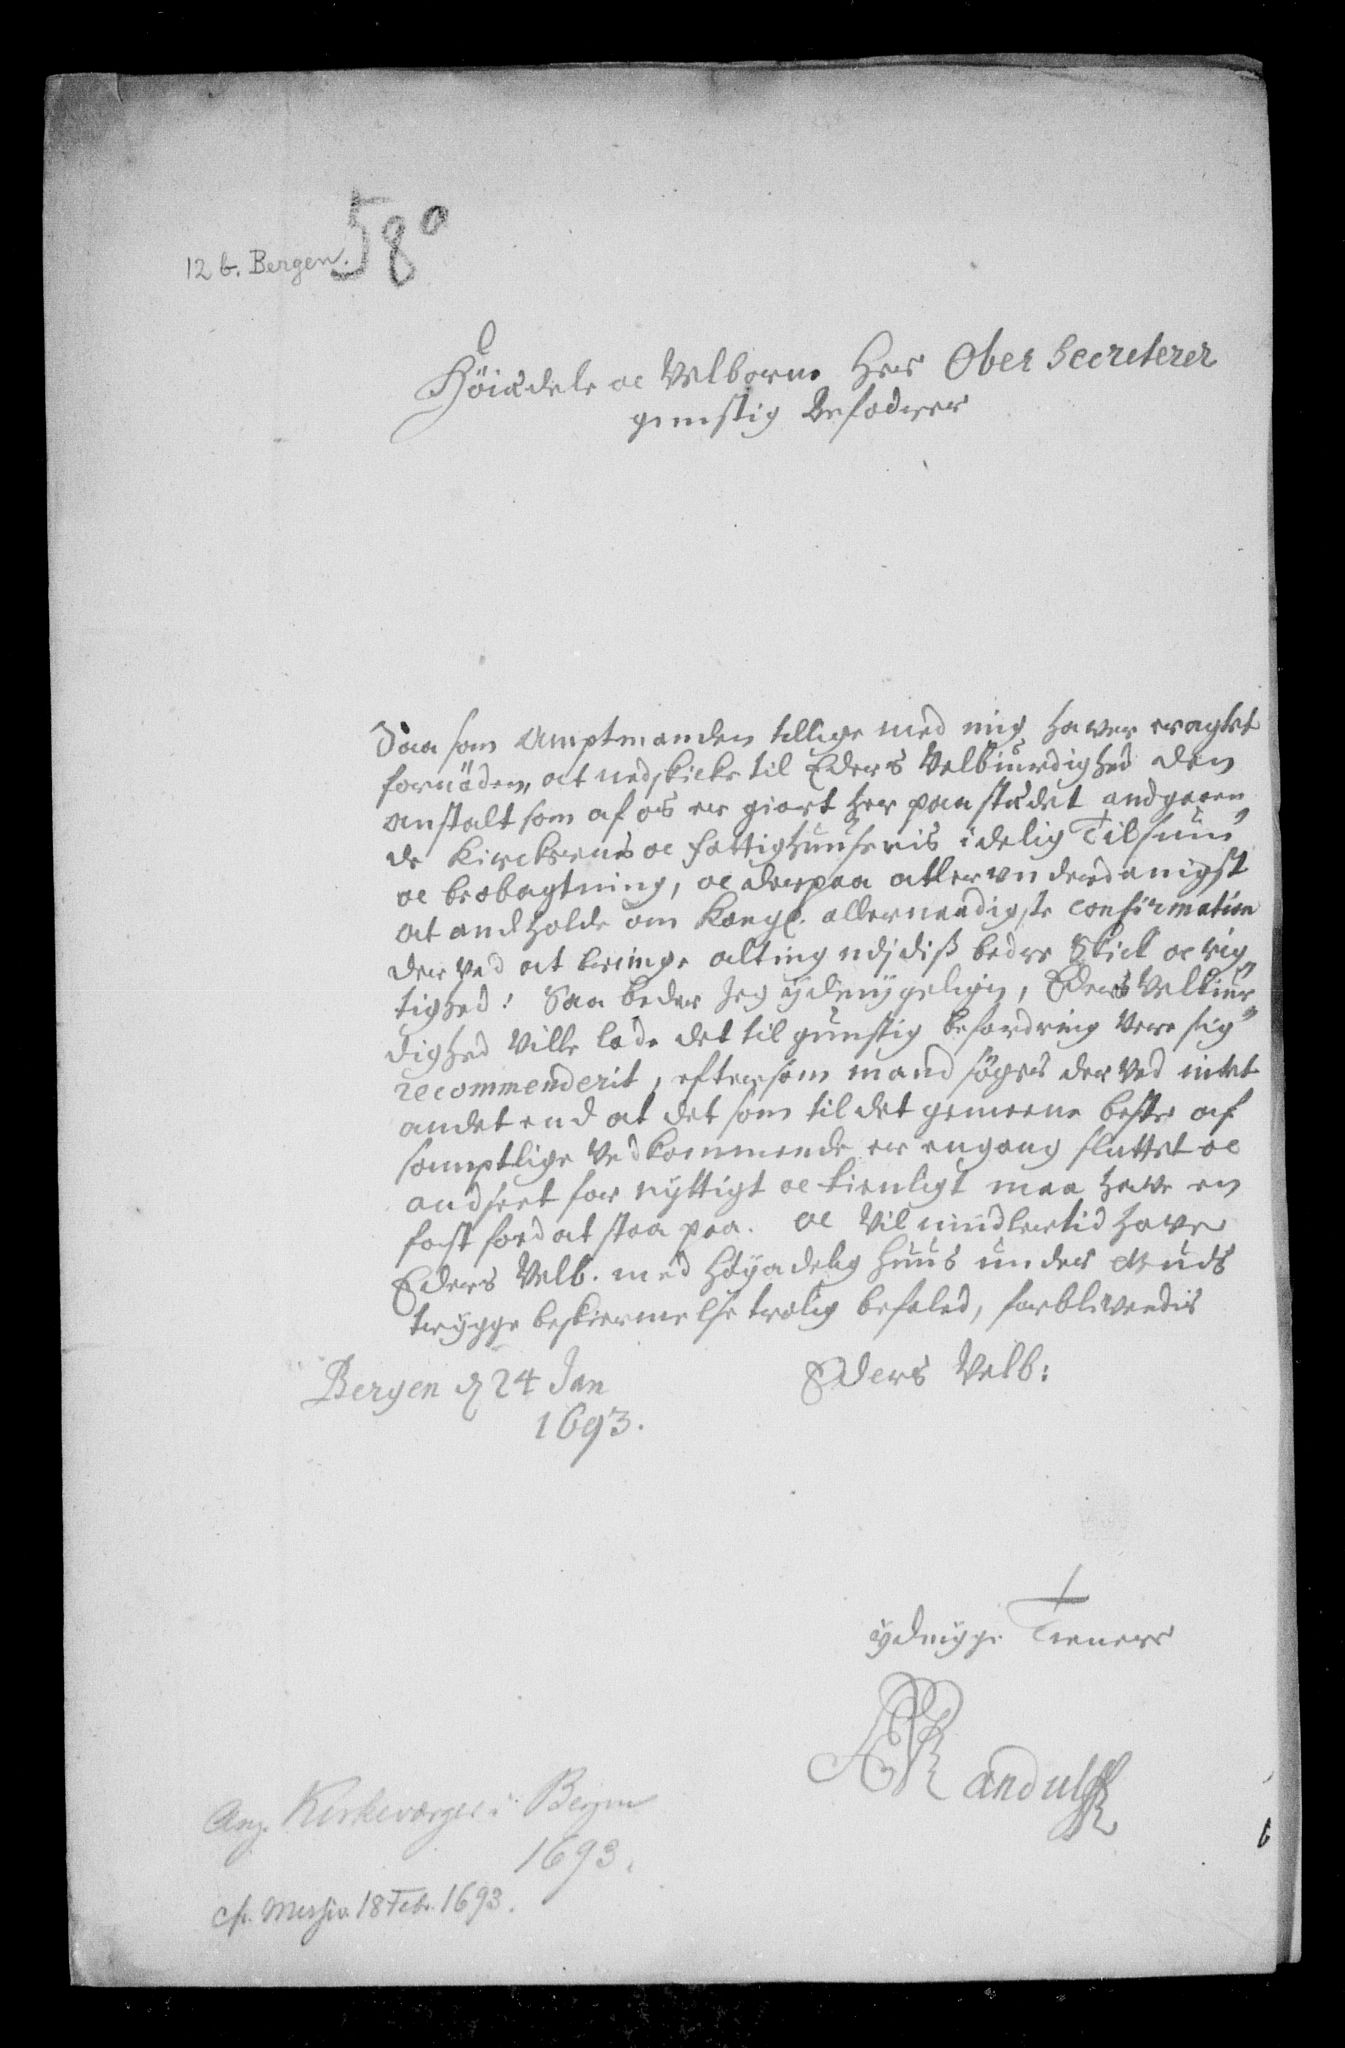 58a
12 b. Bergen.
Höiædele oc Velborne Herr Ober Secreterer
gunstig Befodrer
Saa som Amptmanden tillige med mig haver eragtet
fornöden, at nedskicke til Eders Velbiurdighed den
anstalt som af os er giort her paa stædet andgaaen
de Kirckernes oc fattighuusernis idelig Tilsiun
oc beobagtning, oc derpaa allervnderdanigst
at andholde om Kongl. allernaadigste confirmation
derved at bringe alting udj diss bedre Skick oc rig
tighed: Saa beder Jeg ydmygeligen, Eders Velbiur
dighed Ville lade det til gunstig befordring Vere sig
recommenderit, eftersom mand söger der Ved intet
andet end at det som til det gemeene beste af
samptlige Vedkommende er engang sluttet oc
andseet for nyttigt oc tienligt maa have en
fast foed at staa paa. oc Vil imidlertid have
Eders Velb. med Höyadelig Huus under Guds
trygge beskiermelse trolig befaled, forblivendis
Eders Velb:
Bergen d 24 Jan
1693.
ydmyge Tienere
Randulff
Ang. Kirkeværger i Bergen
1693.
cfr. Missiv 18 Febr. 1693.